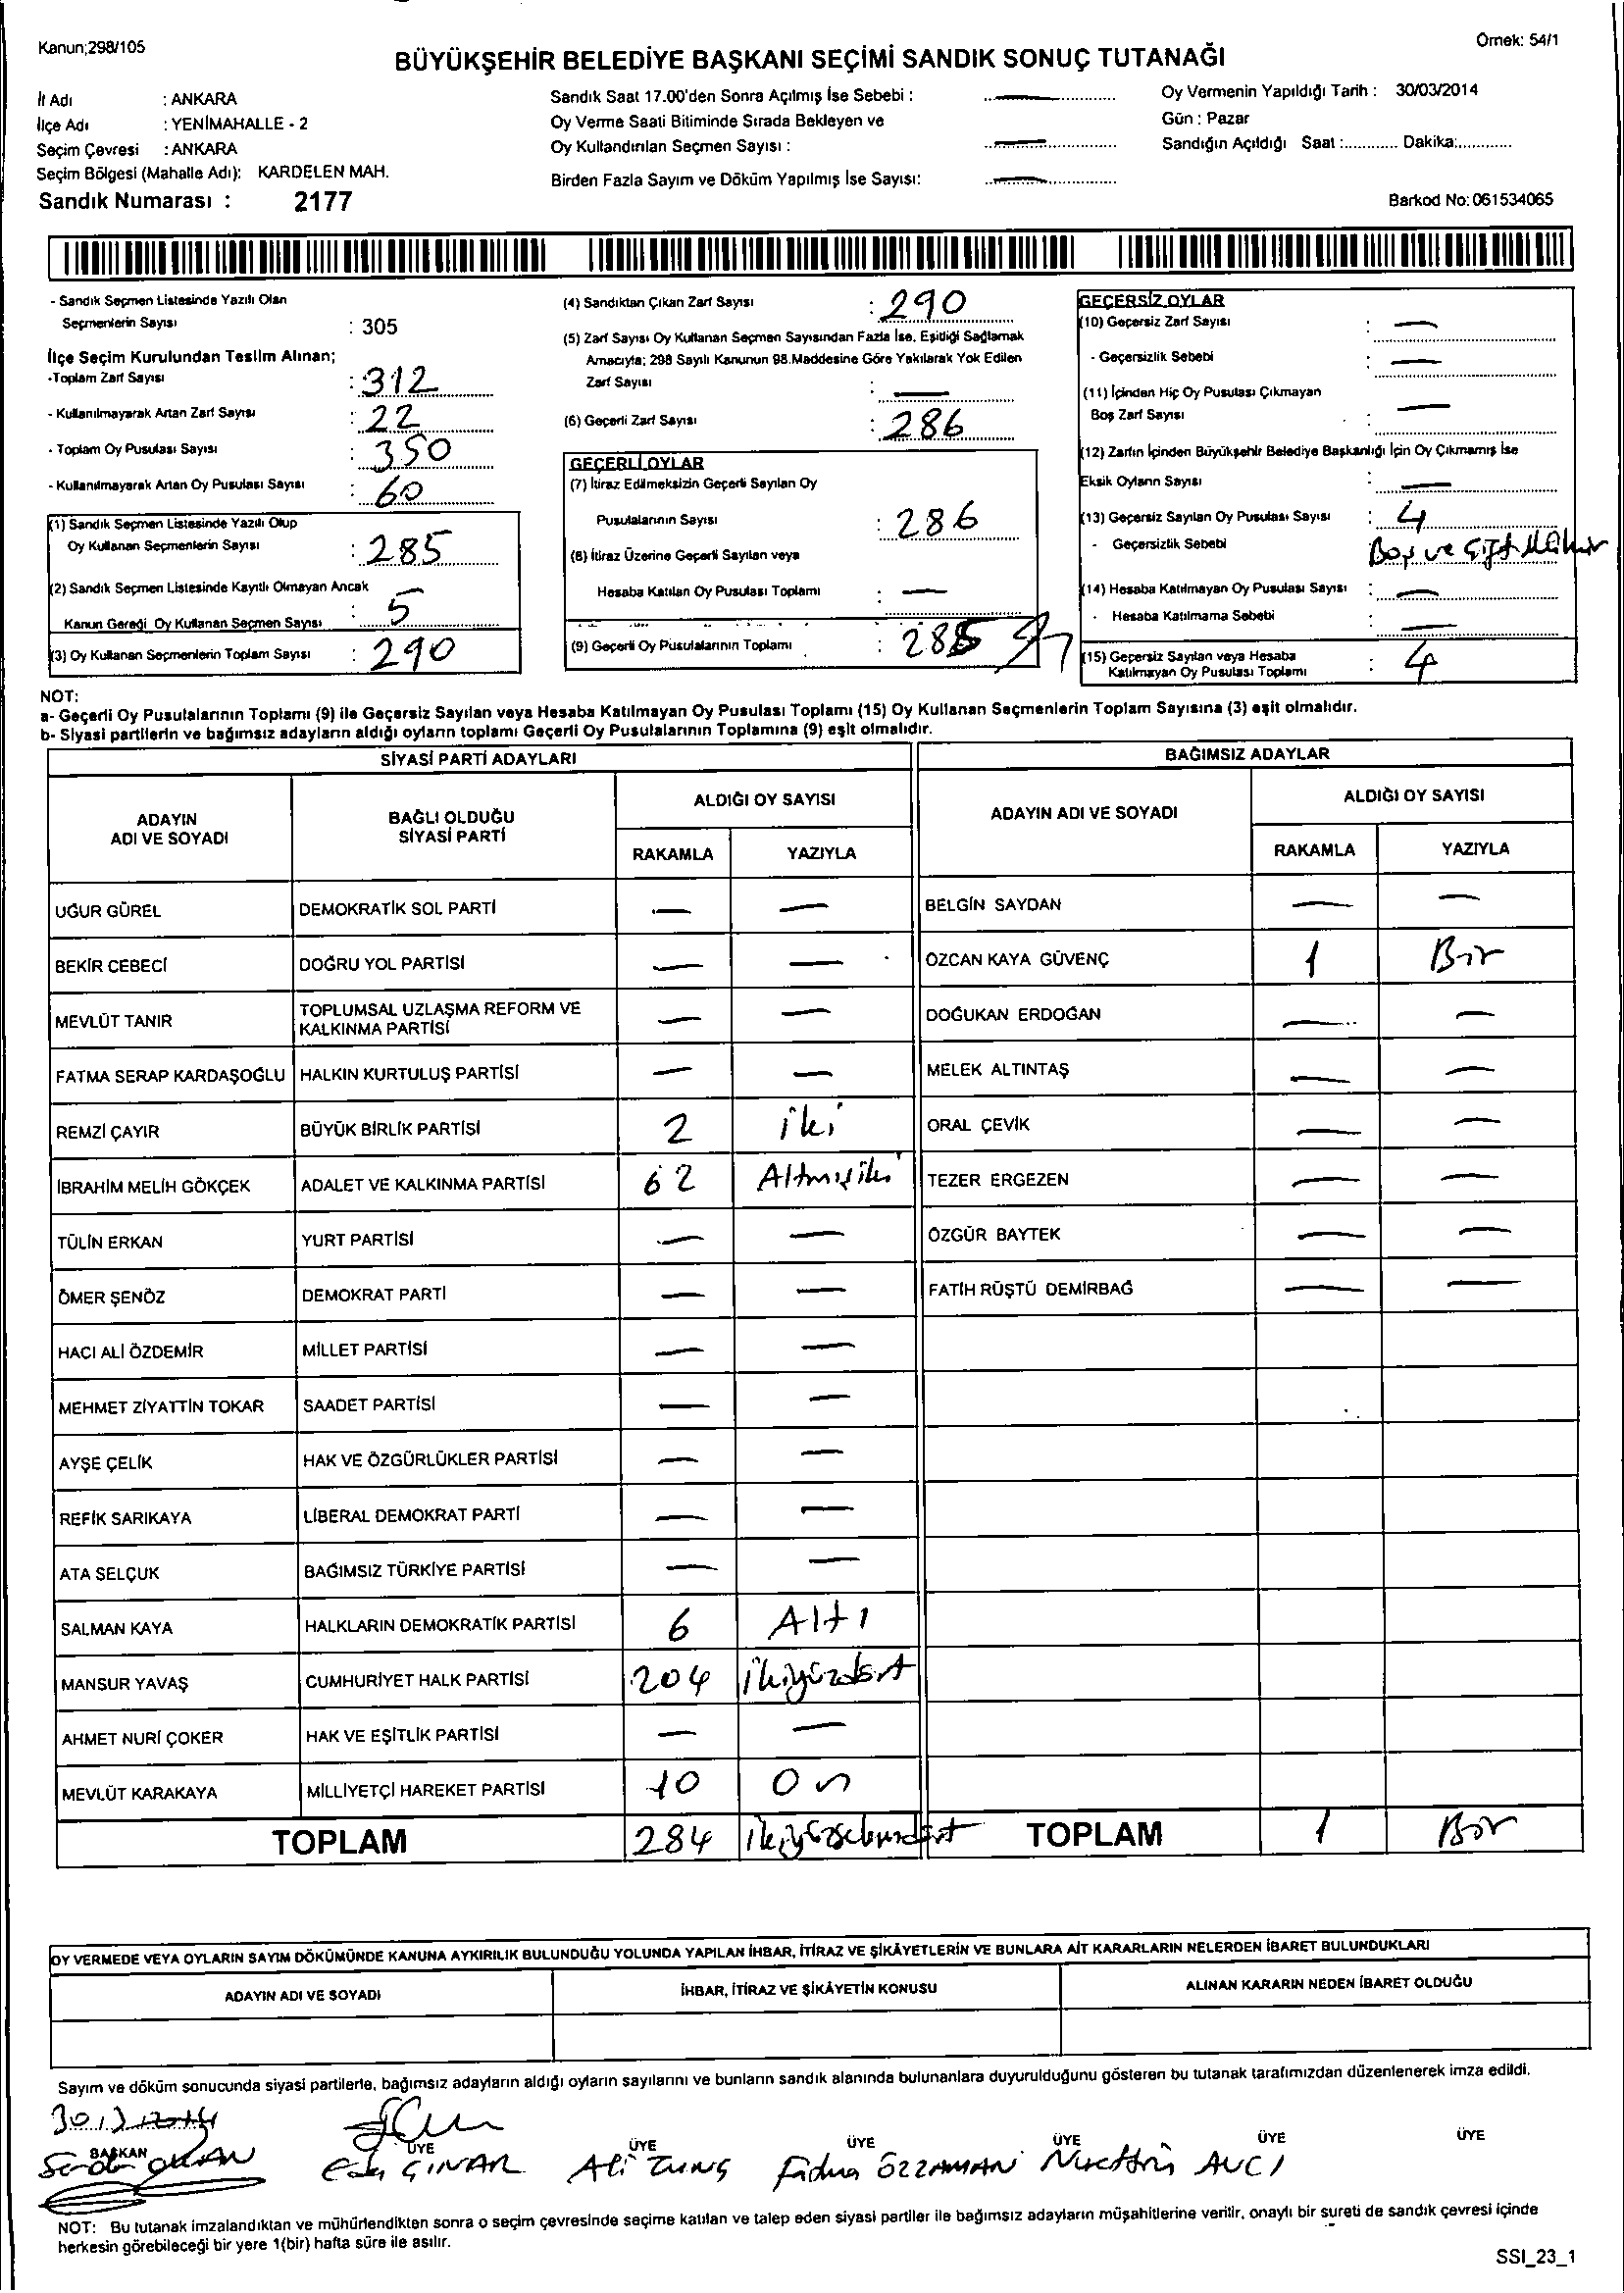 Kanun;298/105
Örnek: 54/1
BÜYÜKŞEHİR BELEDİYE BAŞKANI SEÇİMİ SANDIK SONUÇ TUTANAĞI
İl Adı : ANKARA
İlçe Adı : YENİMAHALLE - 2
Seçim Çevresi : ANKARA
Seçim Bölgesi (Mahalle Adı): KARDELEN MAH.
Sandık Numarası : 2177
Sandık Saat 17.00'den Sonra Açılmış İse Sebebi : —
Oy Verme Saati Bitiminde Sırada Bekleyen ve
Oy Kullandırılan Seçmen Sayısı : —
Birden Fazla Sayım ve Döküm Yapılmış İse Sayısı: —
Oy Vermenin Yapıldığı Tarih : 30/03/2014
Gün : Pazar
Sandığın Açıldığı Saat :............ Dakika:............
Barkod No: 061534065
- Sandık Seçmen Listesinde Yazılı Olan
Seçmenlerin Sayısı : 305
İlçe Seçim Kurulundan Teslim Alınan;
-Toplam Zarf Sayısı : 312
- Kullanılmayarak Artan Zarf Sayısı : 22
- Toplam Oy Pusulası Sayısı : 350
- Kullanılmayarak Artan Oy Pusulası Sayısı : 60
(1) Sandık Seçmen Listesinde Yazılı Olup
Oy Kullanan Seçmenlerin Sayısı : 285
(2) Sandık Seçmen Listesinde Kayıtlı Olmayan Ancak
Kanun Gereği Oy Kullanan Seçmen Sayısı : 5
(3) Oy Kullanan Seçmenlerin Toplam Sayısı : 290
(4) Sandıktan Çıkan Zarf Sayısı : 290
(5) Zarf Sayısı Oy Kullanan Seçmen Sayısından Fazla İse, Eşitliği Sağlamak
Amacıyla; 298 Sayılı Kanunun 98.Maddesine Göre Yakılarak Yok Edilen
Zarf Sayısı : —
(6) Geçerli Zarf Sayısı : 286
GEÇERLİ OYLAR
(7) İtiraz Edilmeksizin Geçerli Sayılan Oy
Pusulalarının Sayısı : 286
(8) İtiraz Üzerine Geçerli Sayılan veya
Hesaba Katılan Oy Pusulası Toplamı : —
(9) Geçerli Oy Pusulalarının Toplamı :
GEÇERSİZ OYLAR
(10) Geçersiz Zarf Sayısı : —
- Geçersizlik Sebebi : —
(11) İçinden Hiç Oy Pusulası Çıkmayan
Boş Zarf Sayısı : —
(12) Zarfın İçinden Büyükşehir Belediye Başkanlığı İçin Oy Çıkmamış İse
Eksik Oyların Sayısı : —
(13) Geçersiz Sayılan Oy Pusulası Sayısı : 4
- Geçersizlik Sebebi Boş ve Çift Mühür
(14) Hesaba Katılmayan Oy Pusulası Sayısı : —
- Hesaba Katılmama Sebebi : —
(15) Geçersiz Sayılan veya Hesaba
Katılmayan Oy Pusulası Toplamı : 4
NOT:
a- Geçerli Oy Pusulalarının Toplamı (9) ile Geçersiz Sayılan veya Hesaba Katılmayan Oy Pusulası Toplamı (15) Oy Kullanan Seçmenlerin Toplam Sayısına (3) eşit olmalıdır.
b- Siyasi partilerin ve bağımsız adayların aldığı oyların toplamı Geçerli Oy Pusulalarının Toplamına (9) eşit olmalıdır.
SİYASİ PARTİ ADAYLARI
ADAYIN
ADI VE SOYADI
BAĞLI OLDUĞU
SİYASİ PARTİ
ALDIĞI OY SAYISI
RAKAMLA YAZIYLA
UĞUR GÜREL DEMOKRATİK SOL PARTİ — —
BEKİR CEBECİ DOĞRU YOL PARTİSİ — —
MEVLÜT TANIR TOPLUMSAL UZLAŞMA REFORM VE
KALKINMA PARTİSİ — —
FATMA SERAP KARDAŞOĞLU HALKIN KURTULUŞ PARTİSİ — —
REMZİ ÇAYIR BÜYÜK BİRLİK PARTİSİ 2 iki
İBRAHİM MELİH GÖKÇEK ADALET VE KALKINMA PARTİSİ 62 Altmışiki
TÜLİN ERKAN YURT PARTİSİ — —
ÖMER ŞENÖZ DEMOKRAT PARTİ — —
HACI ALİ ÖZDEMİR MİLLET PARTİSİ — —
MEHMET ZİYATTİN TOKAR SAADET PARTİSİ — —
AYŞE ÇELİK HAK VE ÖZGÜRLÜKLER PARTİSİ — —
REFİK SARIKAYA LİBERAL DEMOKRAT PARTİ — —
ATA SELÇUK BAĞIMSIZ TÜRKİYE PARTİSİ — —
SALMAN KAYA HALKLARIN DEMOKRATİK PARTİSİ 6 Altı
MANSUR YAVAŞ CUMHURİYET HALK PARTİSİ 204 ikiyüzdört
AHMET NURİ ÇOKER HAK VE EŞİTLİK PARTİSİ — —
MEVLÜT KARAKAYA MİLLİYETÇİ HAREKET PARTİSİ 10 On
TOPLAM 284 ikiyüzseksendört
BAĞIMSIZ ADAYLAR
ADAYIN ADI VE SOYADI
ALDIĞI OY SAYISI
RAKAMLA YAZIYLA
BELGİN SAYDAN — —
ÖZCAN KAYA GÜVENÇ 1 Bir
DOĞUKAN ERDOĞAN — —
MELEK ALTINTAŞ — —
ORAL ÇEVİK — —
TEZER ERGEZEN — —
ÖZGÜR BAYTEK — —
FATİH RÜŞTÜ DEMİRBAĞ — —
TOPLAM 1 Bir
OY VERMEDE VEYA OYLARIN SAYIM DÖKÜMÜNDE KANUNA AYKIRILIK BULUNDUĞU YOLUNDA YAPILAN İHBAR, İTİRAZ VE ŞİKÂYETLERİN VE BUNLARA AİT KARARLARIN NELERDEN İBARET BULUNDUKLARI
ADAYIN ADI VE SOYADI İHBAR, İTİRAZ VE ŞİKÂYETİN KONUSU ALINAN KARARIN NEDEN İBARET OLDUĞU
Sayım ve döküm sonucunda siyasi partilerle, bağımsız adayların aldığı oyların sayılarını ve bunların sandık alanında bulunanlara duyurulduğunu gösteren bu tutanak tarafımızdan düzenlenerek imza edildi.
BAŞKAN ÜYE ÜYE ÜYE ÜYE ÜYE ÜYE
ÇINAR Ali TUNÇ ÖZZAMAN Nurettin AVCI
NOT: Bu tutanak imzalandıktan ve mühürlendikten sonra o seçim çevresinde seçime katılan ve talep eden siyasi partiler ile bağımsız adayların müşahitlerine verilir, onaylı bir sureti de sandık çevresi içinde
herkesin görebileceği bir yere 1(bir) hafta süre ile asılır.
SSI_23_1